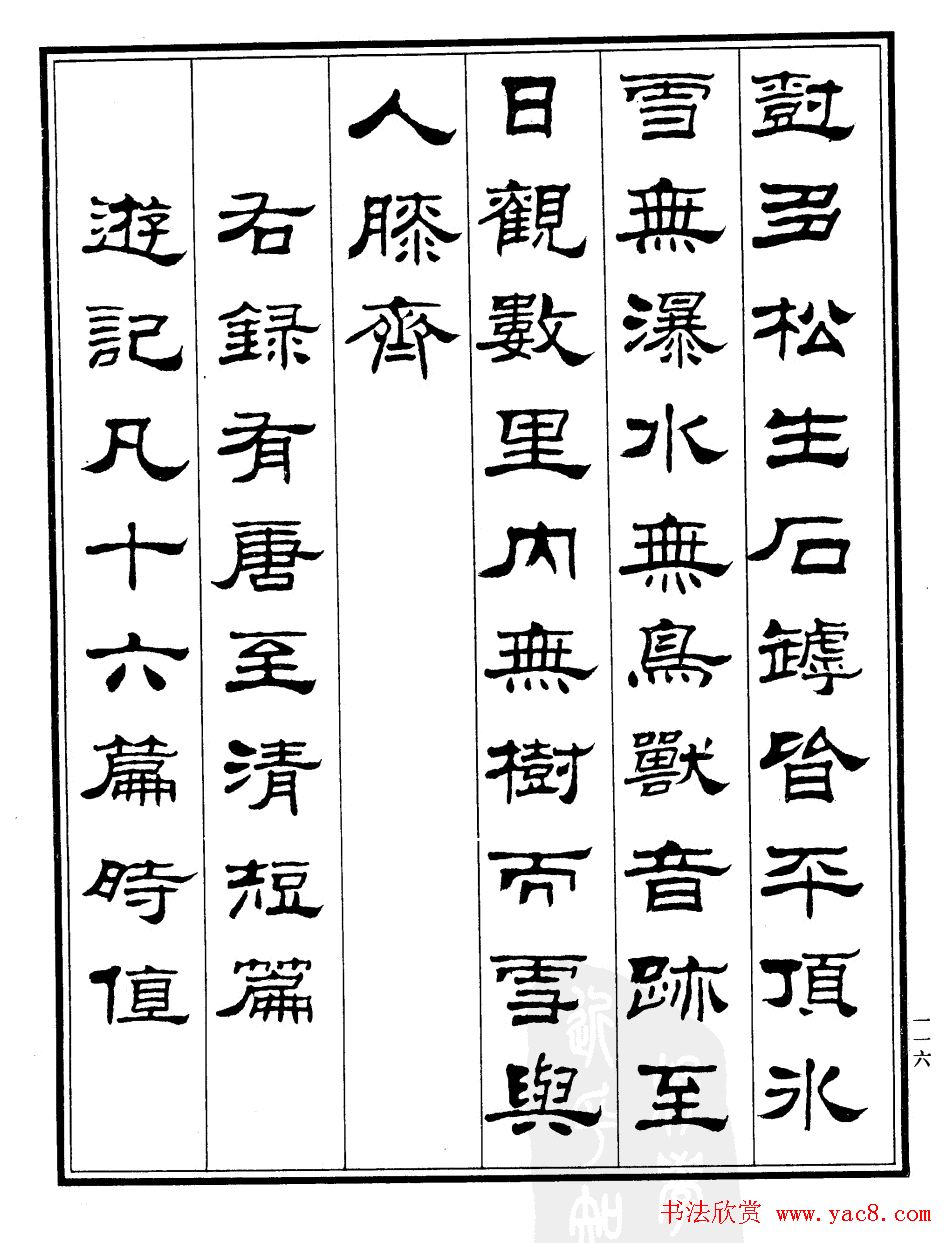 尌多松生石罅皆平頂冰
雪無瀑水無鳥獸音跡至
日觀數里内無樹而雪與
人膝齊
右録有唐至清短篇
遊記凡十六篇時值
一一六
书法欣赏 www.yac8.com